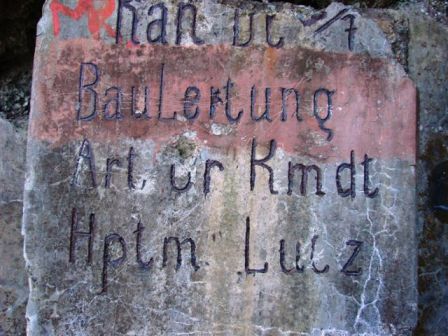 Kan
BauLeitung
Art Kmdt
Hptm Lutz